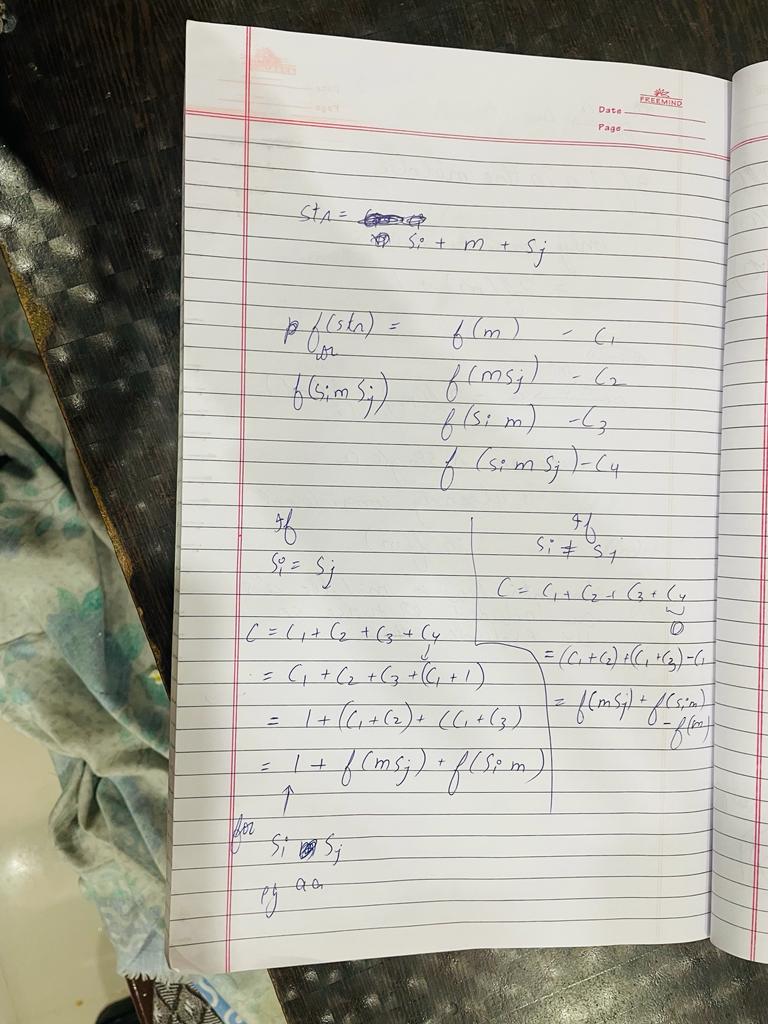 FREEMIND
Date
Page
str =
Si + m + Sj
f(str) = f(m) - C1
or
f(Si m Sj) f(mSj) - C2
f(Si m) - C3
f (Si m Sj) - C4
If
Si = Sj
C = C1 + C2 + C3 + C4
= C1 + C2 + C3 + (C1 + 1)
= 1 + (C1 + C2) + (C1 + C3)
= 1 + f(mSj) + f(Si m)
↑
for
Si Sj
eg aa
If
Si ≠ Sj
C = C1 + C2 + C3 + C4
0
= (C1 + C2) + (C1 + C3) - C1
= f(mSj) + f(Si m)
- f(m)